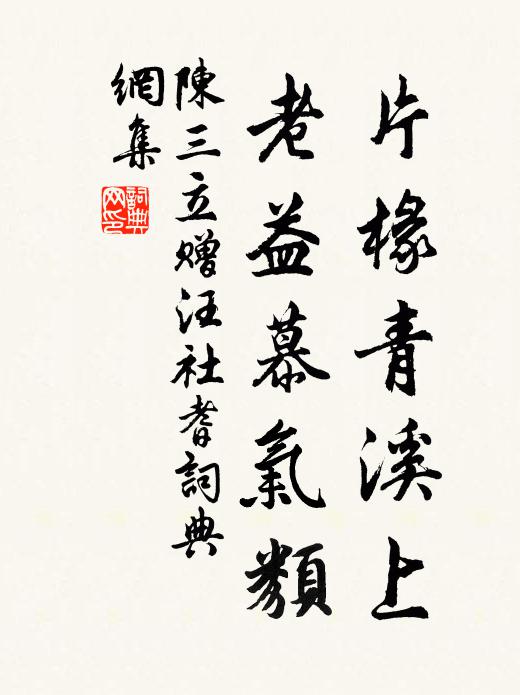 片椽青溪上
老益慕氣類
陳三立贈汪社耆詞典
網集
詞典網印